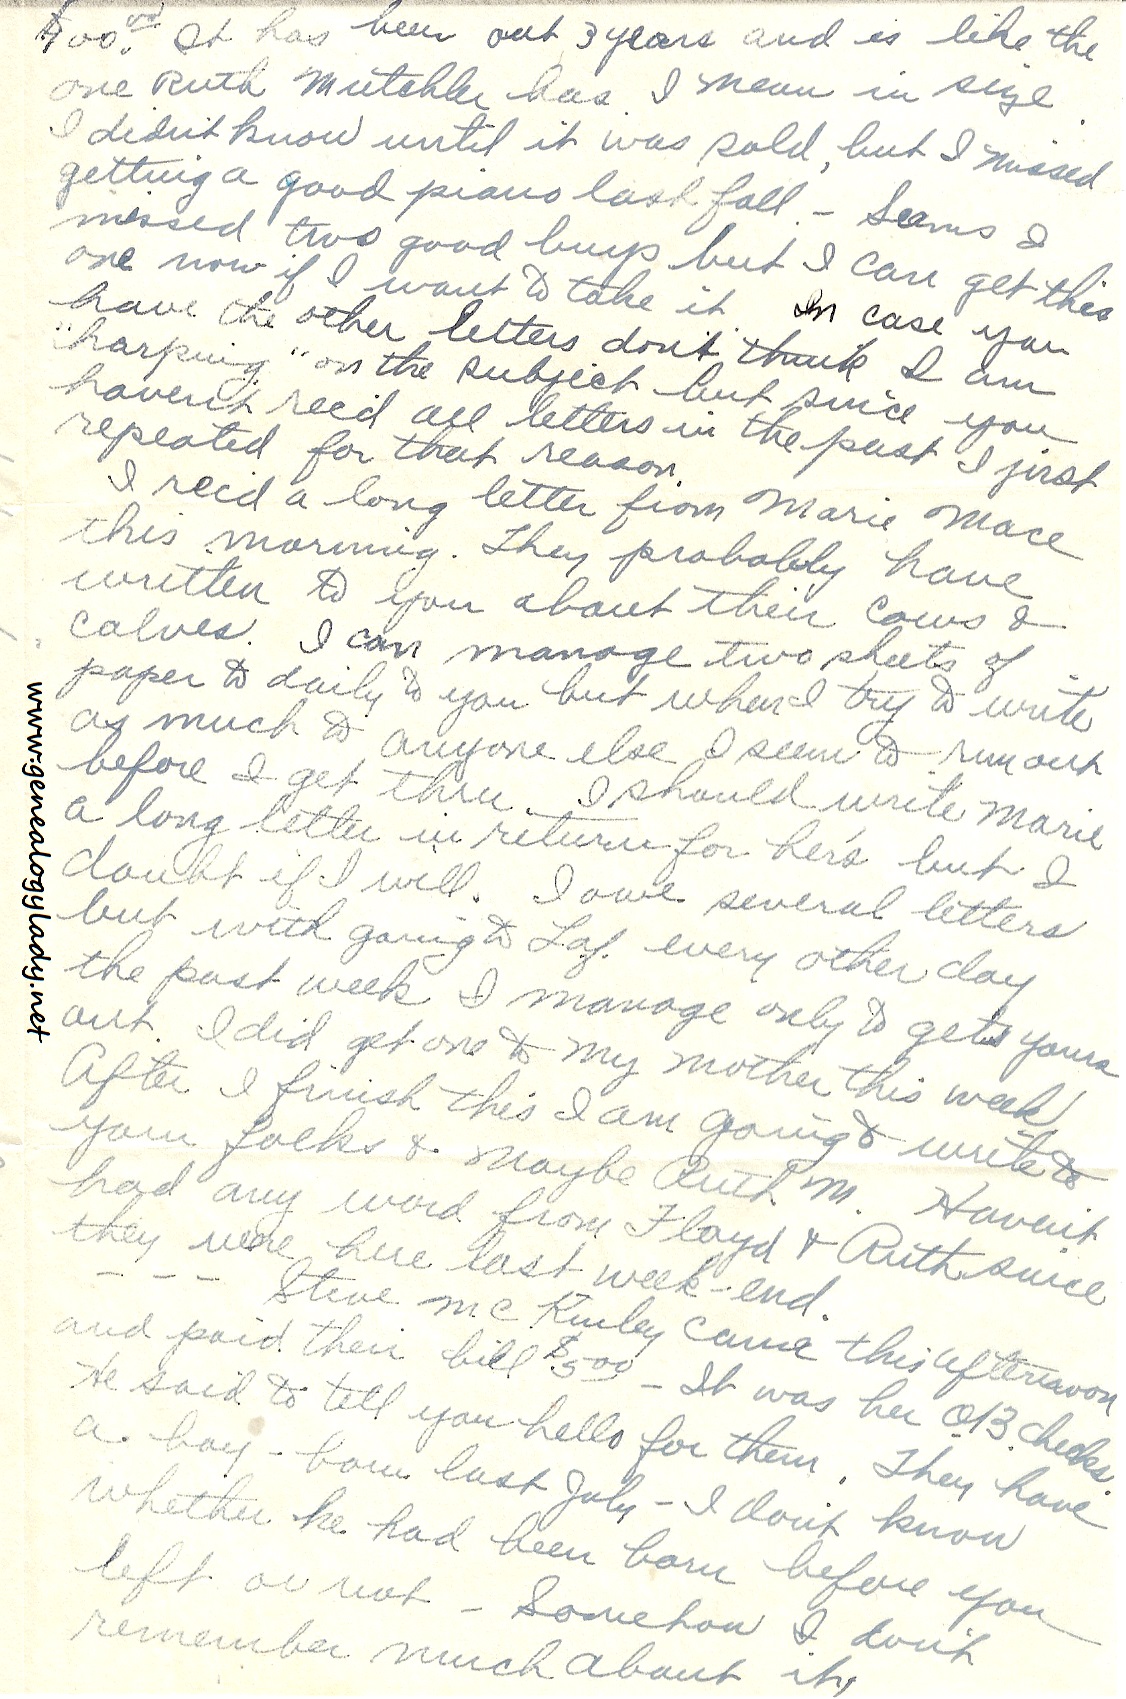 $400.00. It has been out 3 years and is like the
one Ruth Mutchler has. I mean in size.
I didn't know until it was sold, but I missed
getting a good piano last fall. - Seems I
missed two good buys but I can get this
one now if I want to take it. In case you
have the other letters don't think I am
"harping" on the subject but since you
haven't rec'd all letters in the past I just
repeated for that reason.
I rec'd a long letter from Marie Mace
this morning. They probably have
written to you about their cows &
calves. I can manage two sheets of
paper to daily to you but when I try to write
as much to anyone else I seem to run out
before I get thru. I should write Marie
a long letter in return for hers but I
doubt if I will. I owe several letters
but with going to Laf. every other day
the past week I manage only to get yours
out. I did get one to my mother this week.
After I finish this I am going to write to
your folks & maybe Ruth M. Haven't
had any word from Floyd & Ruth since
they were here last week-end.
- - - Steve McKinley came this afternoon
and paid their bill $5.00 - It was her OB checks.
He said to tell you hello for them. They have
a boy - born last July - I don't know
whether he had been born before you
left or not - Somehow I don't
remember much about it,
www.genealogylady.net